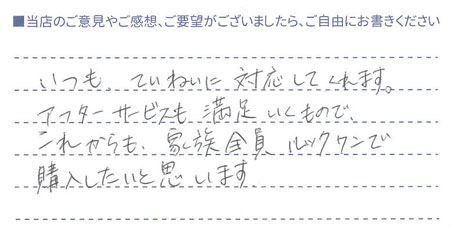 ■当店のご意見やご感想、ご要望がございましたら、ご自由にお書きください
いつも、ていねいに対応してくれます。
アフターサービスも満足いくもので、
これからも、家族全員ルックワンで
購入したいと思います。